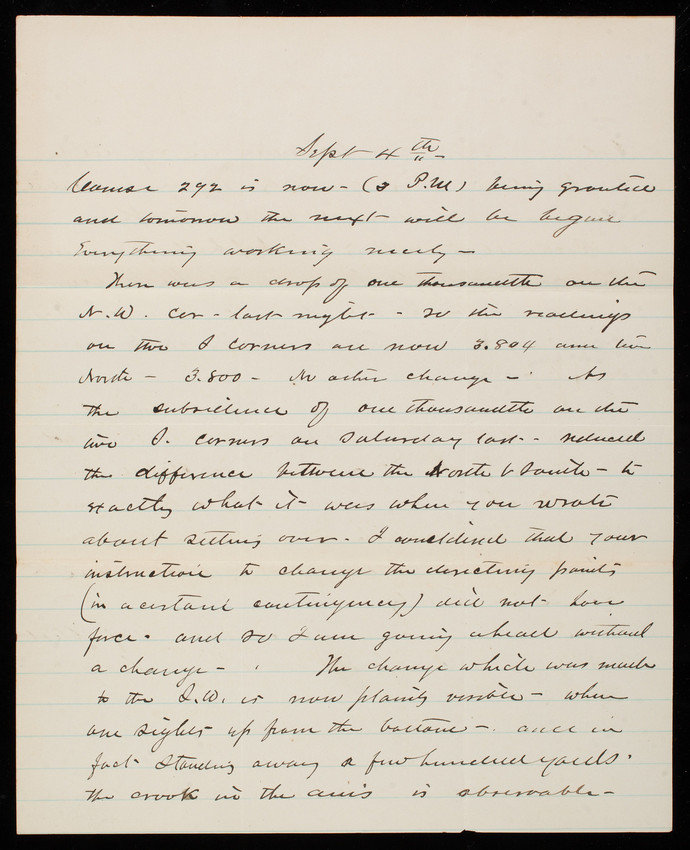 Sept 4th
Course 292 is now - (3 P.M) being grouted
and tomorrow the next will be begun
Everything working nicely -
There was a drop of one thousandth on the
N.W. cor - last night - so the readings
on the S corners are now 3.804 and two
North - 3.800 - No other change - As
the subsidence of one thousandth on the
two S. corners on Saturday last - reduced
the difference between the North & South - to
exactly what it was when you wrote
about setting over - I concluded that your
instruction to change the directing points
(in a certain contingency) did not have
force - and so I am going ahead without
a change - The change which was made
to the S.W. is now plainly visible - when
one sights up from the bottom - and in
fact standing away a few hundred yards -
the crook in the axis is observable -